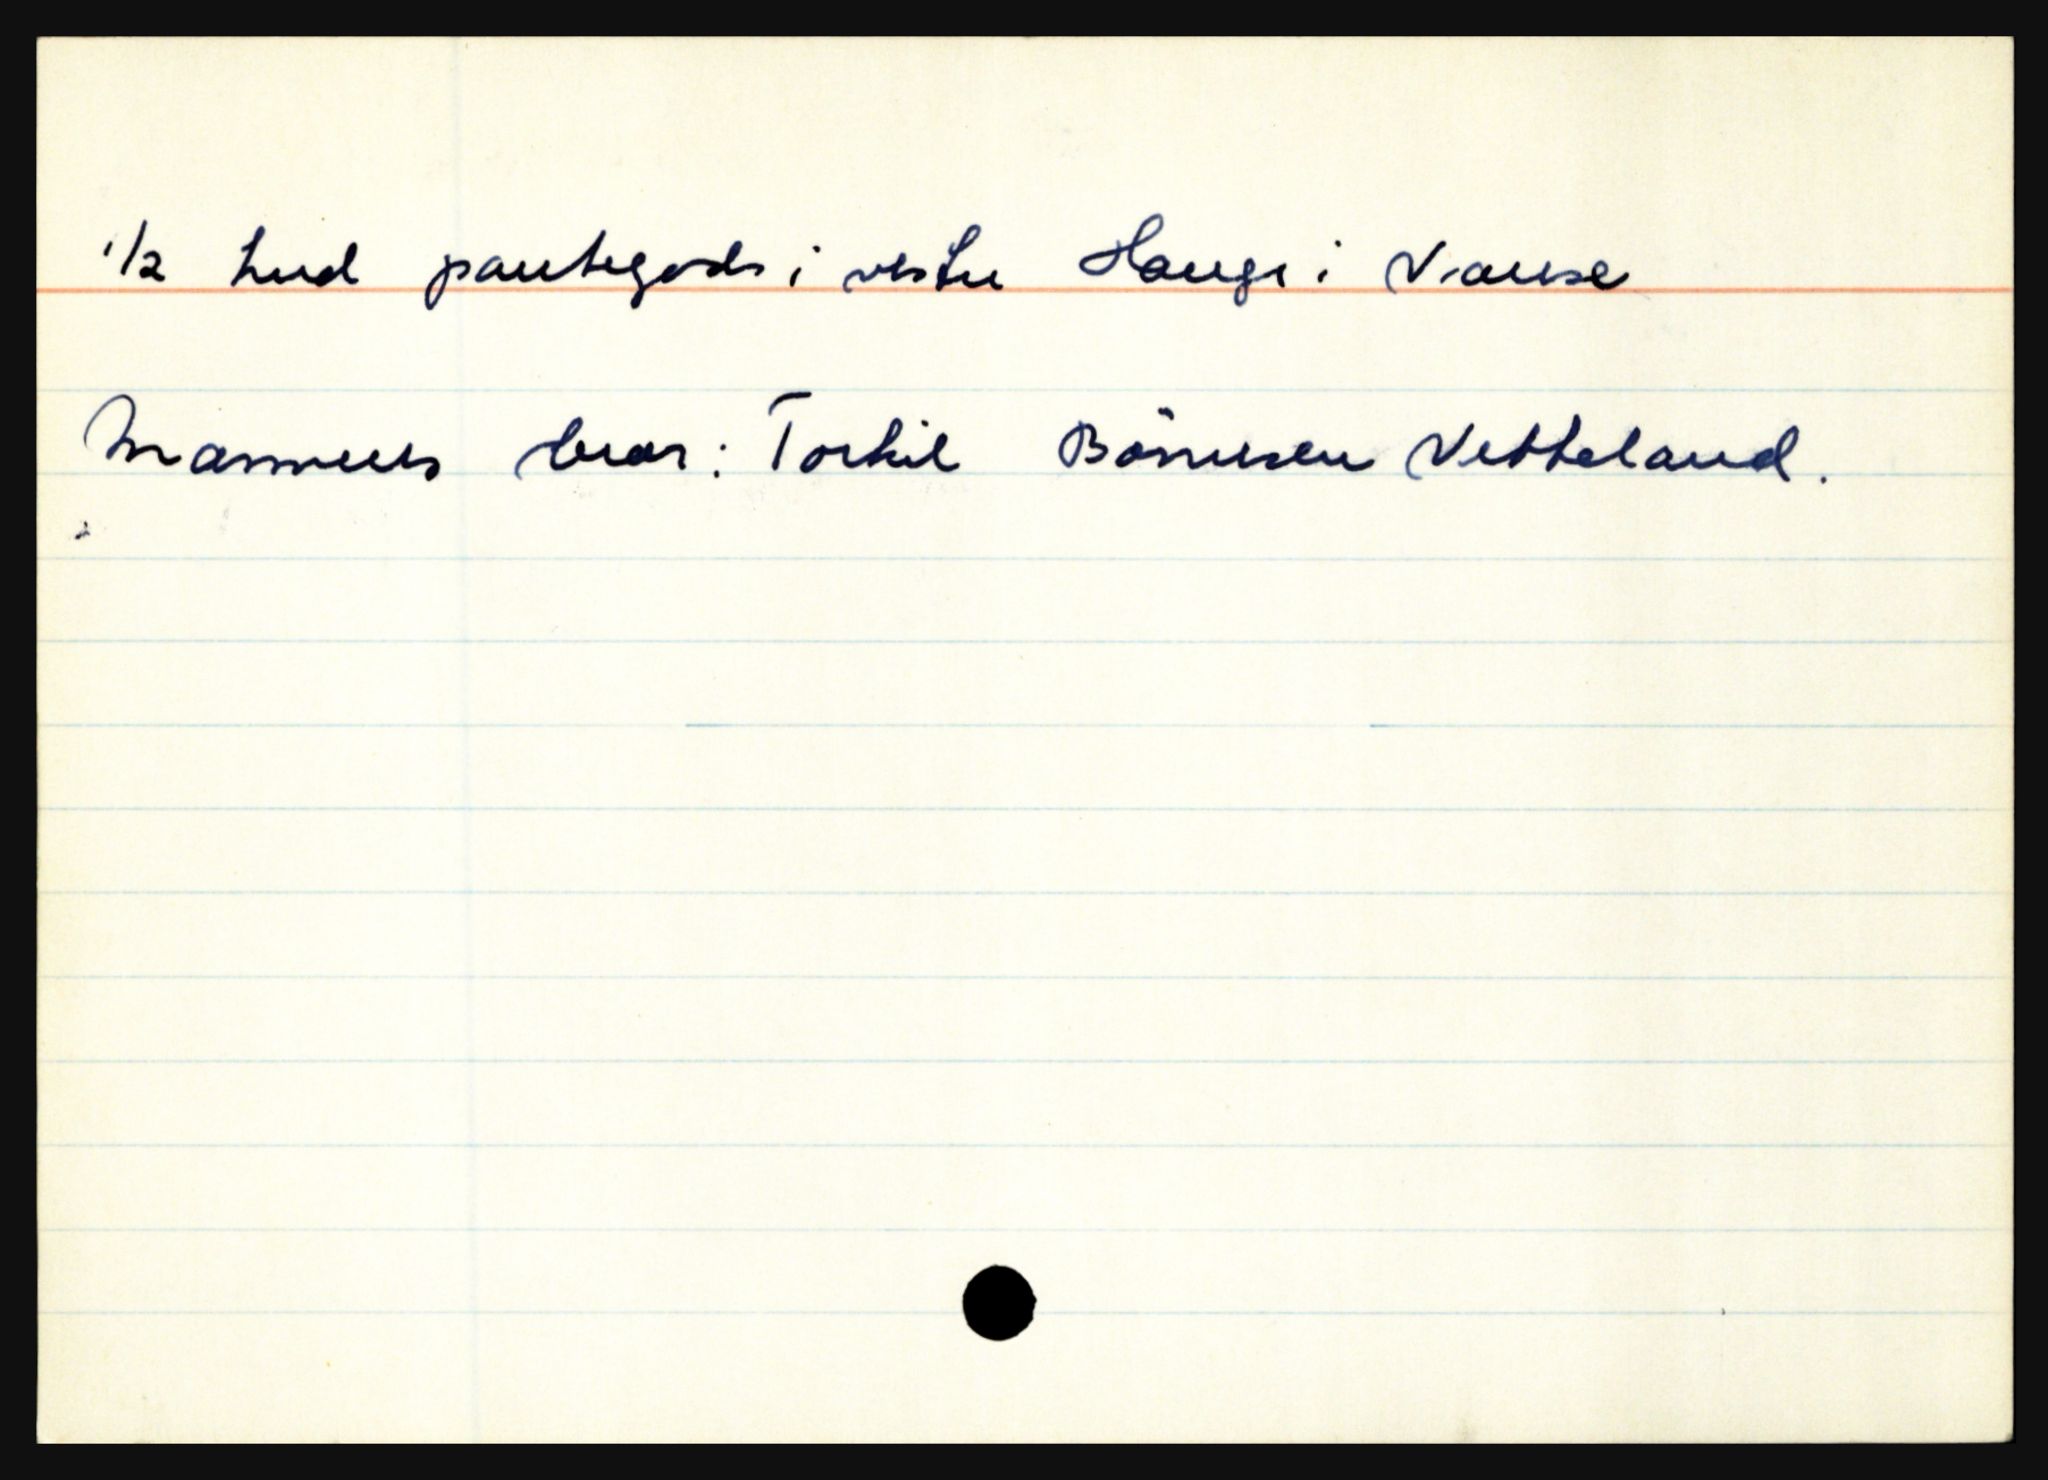 1/2 hud pantegods i vestre Hauge i Vanse
Mannens bror: Torkil Bönnesen Vetteland.